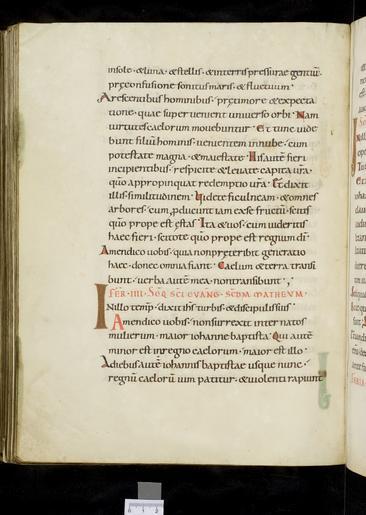 in sole · & luna · & stellis · & in terris pressurae gentiū ·
pręconfusione sonitus maris · & fluctuum ·
Arescentibus hominibus · prętimore & expecta
tione · quae super venient universo orbi · Nam
virtutes caelorum movebuntur · Et tunc vide
bunt filiū hominis · venientem in nube · cum
potestate magna · & maiestate · His autē fieri
incipientibus · respicite & levate capita vr̄a ·
quō appropinquat redemptio vr̄a · Et dixit
illis similitudinem · Videte ficulneam · & omnes
arbores · cum producunt iam ex se fructū · scitis
quō prope est ęstas · Ita & vos · cum videritis
haec fieri · scitote quō prope est regnum dī ·
Amen dico vobis · quia non pręteribit generatio
haec · donec omnia fiant · Caelum & terra transi
bunt · verba autē mea · non transibunt ;
FER · IIII · SEQ SCI EVANG · SECDM MATHEVM ·
In illo temp̄ · dixit ihs̄ turbis · & discipulis suis
Amen dico vobis · non surrexit inter natos
mulierum · maior iohanne baptista · Qui autē
minor est in regno caelorum · maior est illo ·
A diebus autē iohannis baptistae usque nunc ·
regnū caelorū vim patitur · & violenti rapiunt